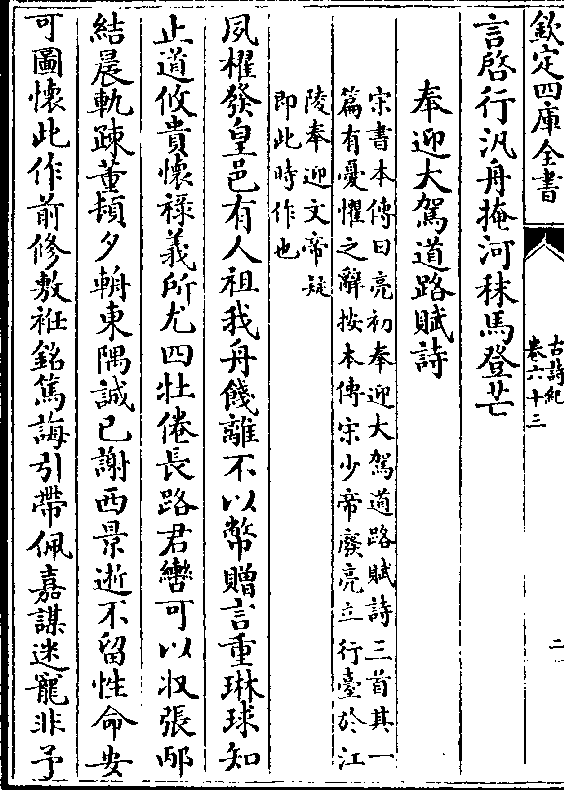 欽定四庫全書
古詩紀
卷六十三
二
言啓行汎舟掩河秣馬登芒
奉迎大駕道路賦詩
宋書本傳曰亮初奉迎大駕道路賦詩三首其一
篇有憂懼之辭按本傳宋少帝廢亮立行臺於江
陵奉迎文帝疑
即此時作也
夙櫂發皇邑有人祖我舟餞離不以幣贈言重琳球知
止道攸貴懷祿義所尤四牡倦長路君轡可以収張邴
結晨軌疎董頓夕輈東隅誠已謝西景逝不留性命安
可圖懷此作前修敷袵銘篤誨引帶佩嘉謀迷寵非予